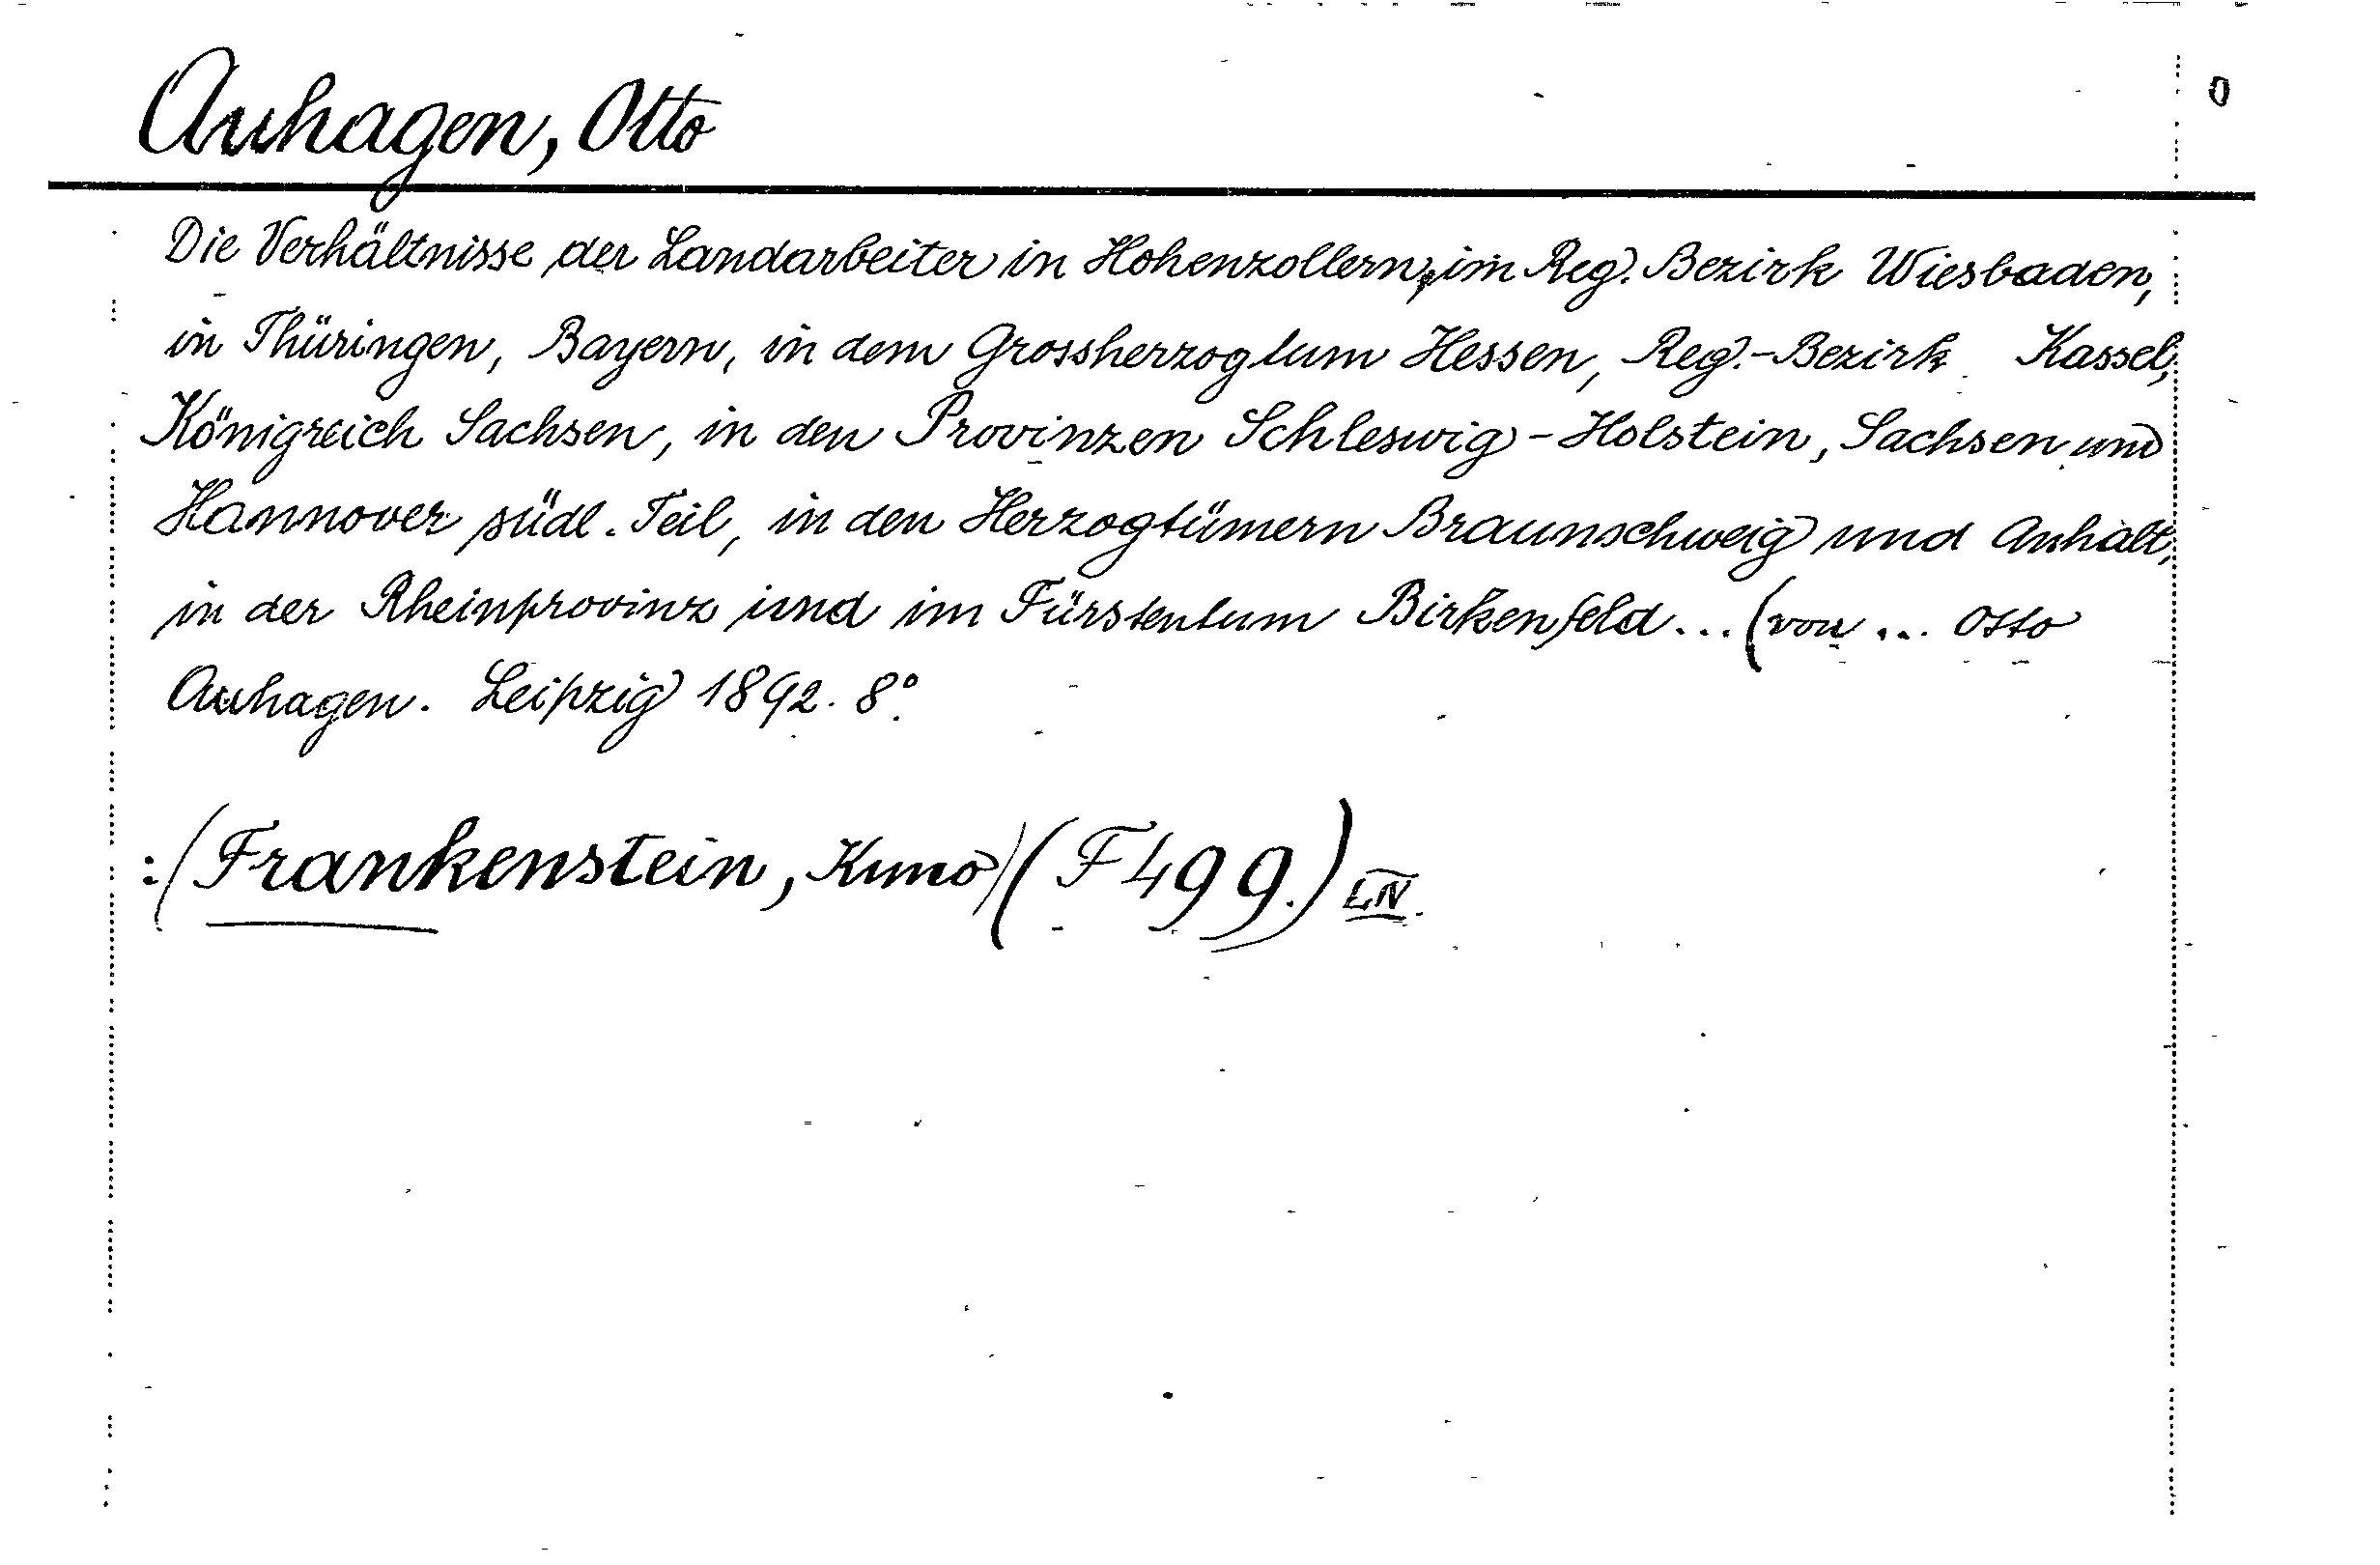 Auhagen, Otto
Die Verhältnisse der Landarbeiter in Hohenzollern, im Reg. Bezirk Wiesbaden,
in Thüringen, Bayern, in dem Grossherzogtum Hessen, Reg.-Bezirk Kassel,
Königreich Sachsen, in den Provinzen Schleswig-Holstein, Sachsen und
Hannover südl. Teil, in den Herzogtümern Braunschweig und Anhalt,
in der Rheinprovinz und im Fürstentum Birkenfeld... (von ... Otto
Auhagen. Leipzig 1892. 8°.
:(Frankenstein, Kuno) (F 499.)